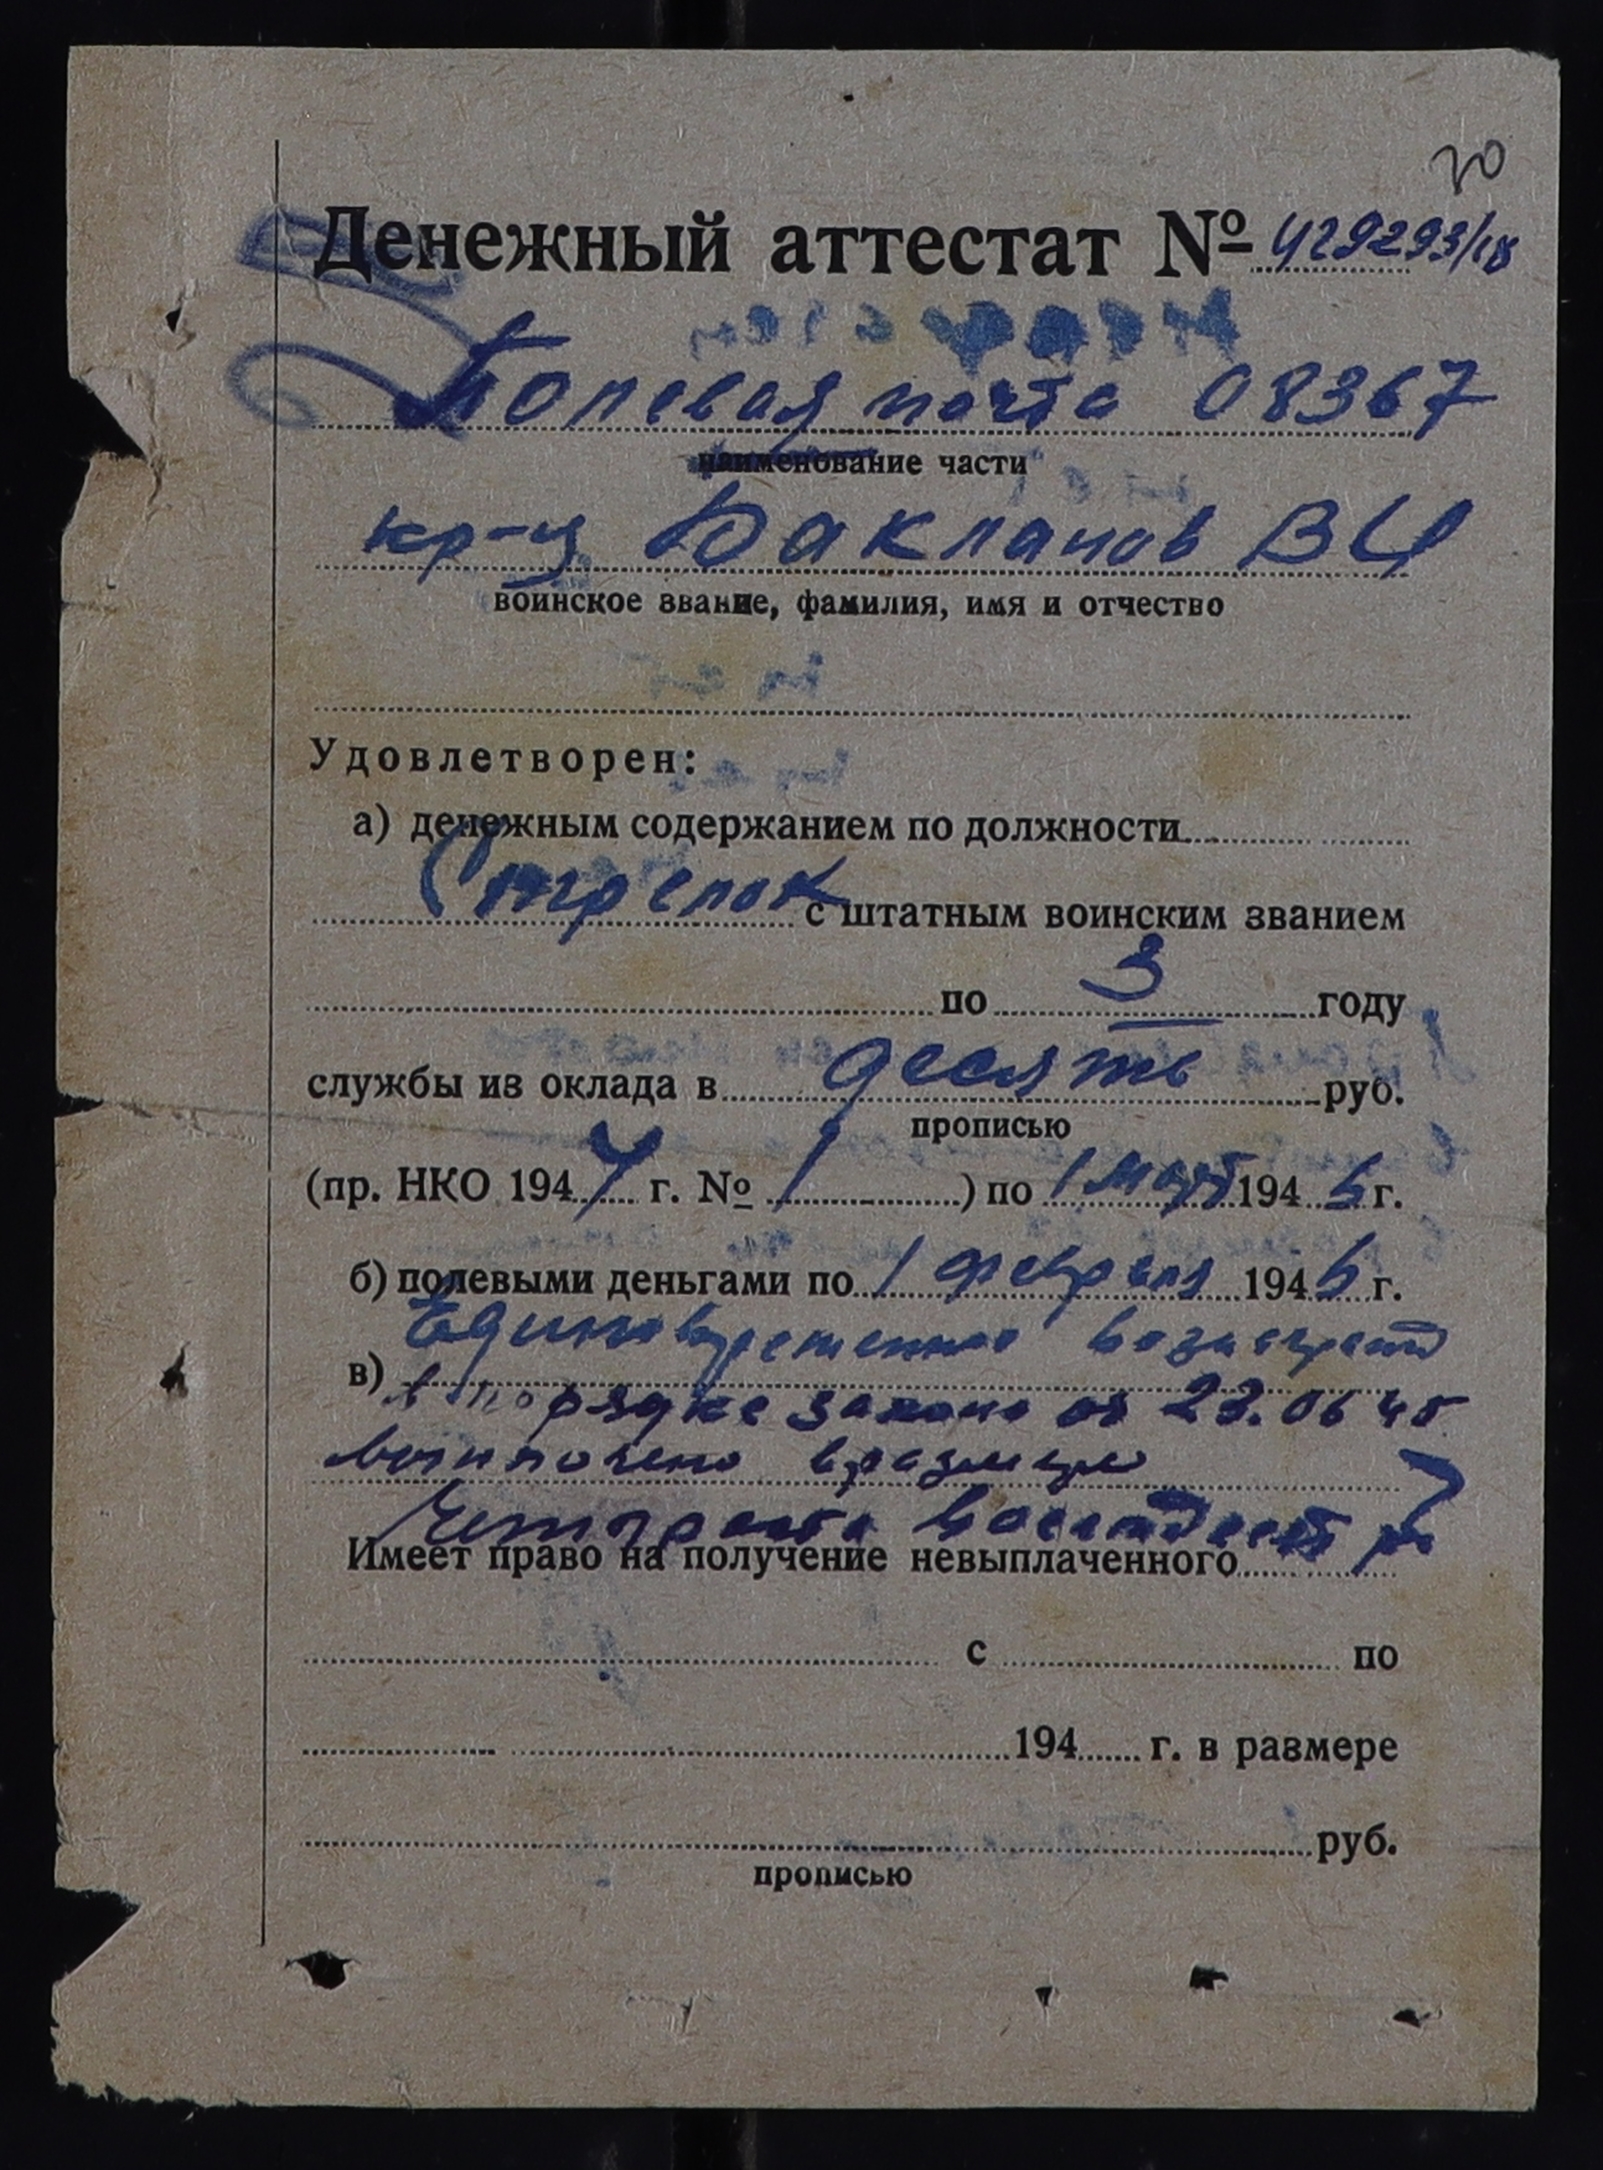 20
Денежный аттестат № 429293/18
Полевая почта 08367
наименование части
кр-ц Бакланов В И
воинское звание, фамилия, имя и отчество
Удовлетворен:
а) денежным содержанием по должности
Стрелок с штатным воинским званием
по 3 году
службы из оклада в десять руб.
прописью
(пр. НКО 1944 г. № 1 ) по 1 март 1946 г.
б) полевыми деньгами по 1 февраля 1946 г.
Единовременное вознагражд
в)
в порядке закона от 23.06 45
выплачено в размере
Четыреста восемдесят р
Имеет право на получение невыплаченного
с по
194 г. в размере
руб.
прописью